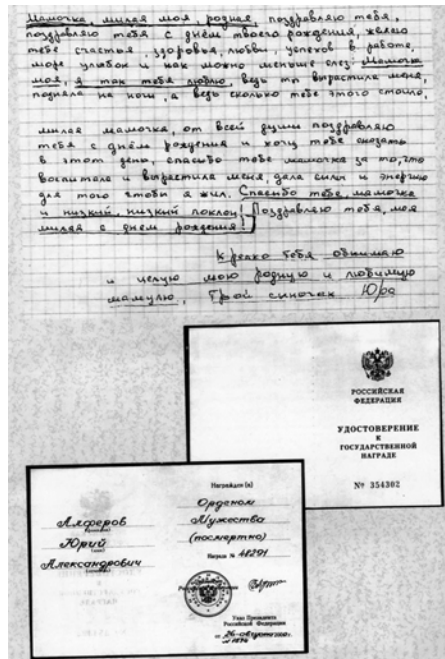 Мамочка, милая моя, родная, поздравляю тебя,
поздравляю тебя с днём твоего рождения, желаю
тебе счастья, здоровья, любви, успехов в работе,
море улыбок и как можно меньше слез. Мамочка
моя, я так тебя люблю, ведь ты вырастила меня,
подняла на ноги, а ведь сколько тебе этого стоило,
милая мамочка, от всей души поздравляю
тебя с днём рождения и хочу тебе сказать
в этот день, спасибо тебе мамочка за то, что
воспитала и вырастила меня, дала силы и энергию
для того чтобы я жил. Спасибо тебе, мамочка
и низкий, низкий поклон! Поздравляю тебя, моя
милая с днем рождения!
Крепко тебя обнимаю
и целую мою родную и любимую
мамулю, Твой сыночек Юра
РОССИЙСКАЯ
ФЕДЕРАЦИЯ
УДОСТОВЕРЕНИЕ
К
ГОСУДАРСТВЕННОЙ
НАГРАДЕ
№ 354302
Алферов
Юрий
Александрович
Награжден (а)
Орденом
Мужества
(посмертно)
Награда № 48291
Указ Президента
Российской Федерации